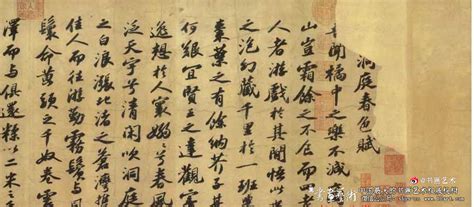 洞庭春色賦
吾聞橘中之樂不減
山豈霜餘之不食而四老
人者游戲於其間悟此
之泡幻藏千里於一班
棗葉之有餘納芥子其
何艱宜賢王之達觀
逸想於人寰嫋嫋兮春風
泛天宇兮清閑吹洞庭
之白浪漲北渚之蒼灣
佳人而往游勤霧鬢與
鬟命黃頭之千奴卷震
澤而與俱還糅以二米
@书画艺术